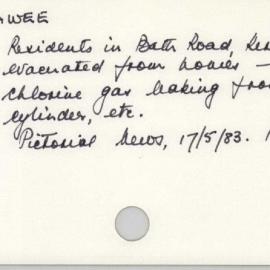 AWEE
Residents in Bath Road,
evacuated from homes —
chlorine gas leaking from
cylinder, etc.
Pictorial News, 17/5/83.